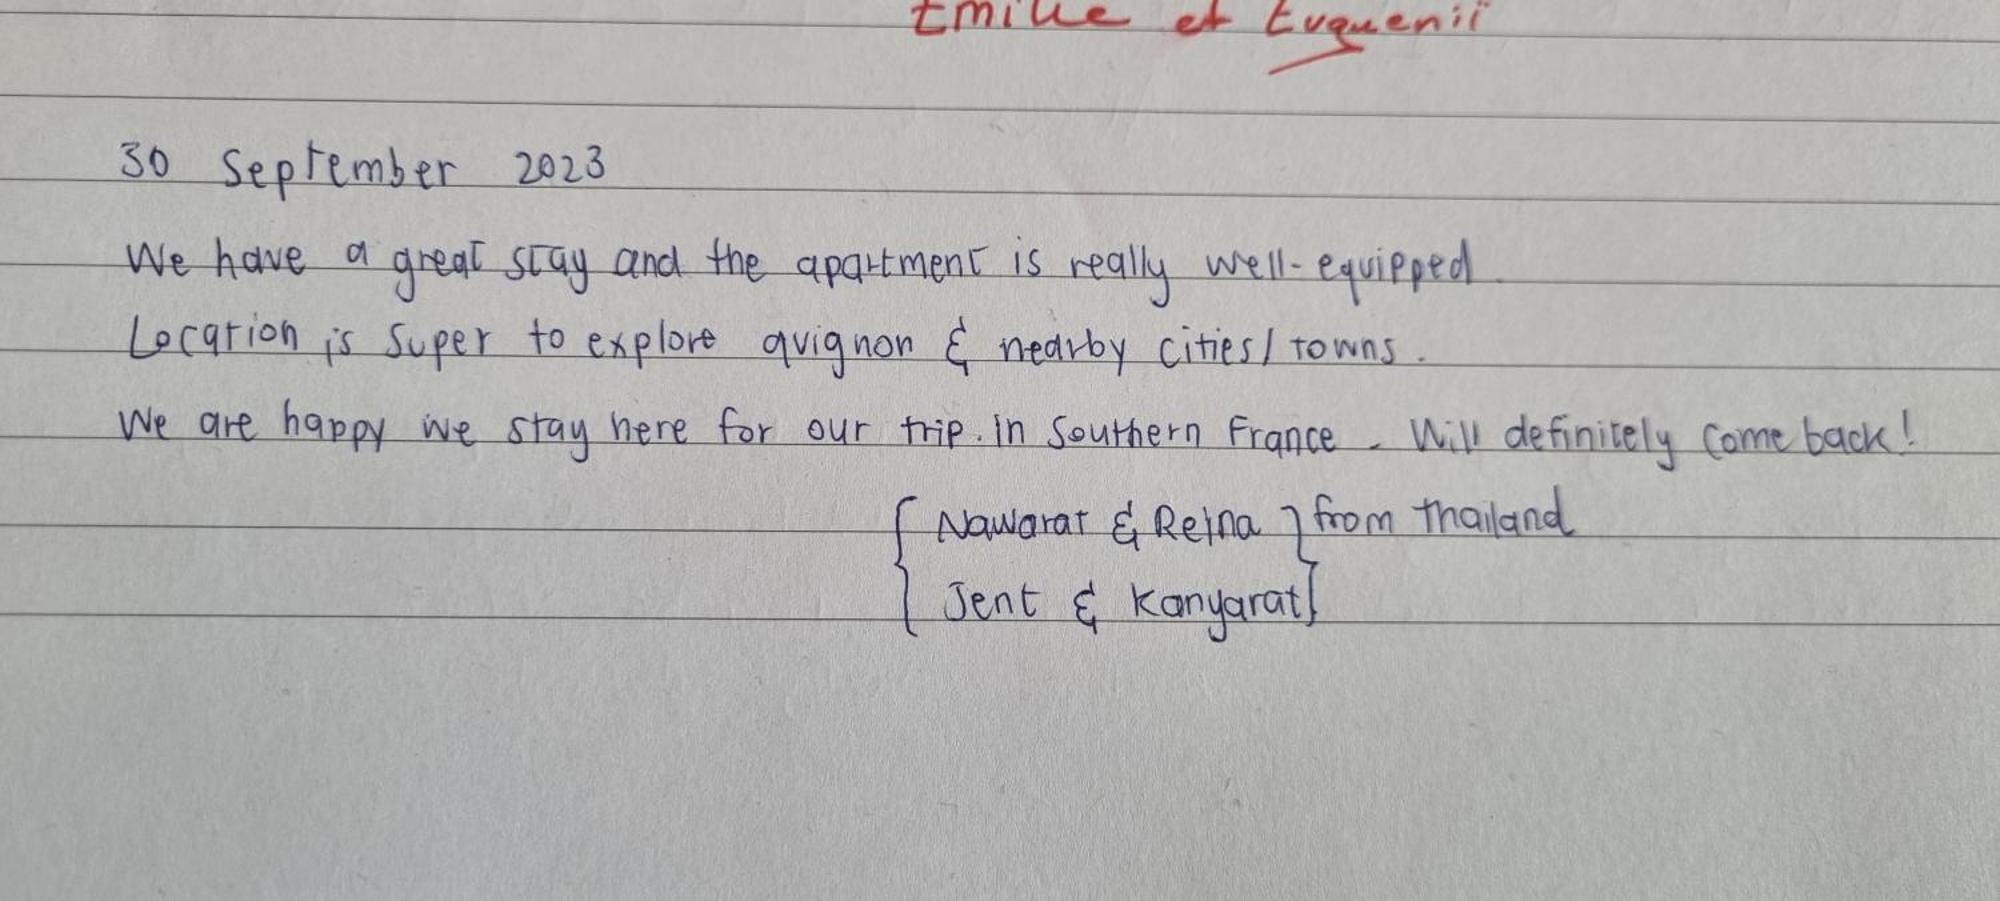 Emilie et Evguenii
30 September 2023
We have a great stay and the apartment is really well-equipped.
Location is super to explore avignon & nearby cities/towns.
We are happy we stay here for our trip. in Southern France. Will definitely come back!
{ Nawarat & Rejna } from Thailand
Jent & Kanyarat }